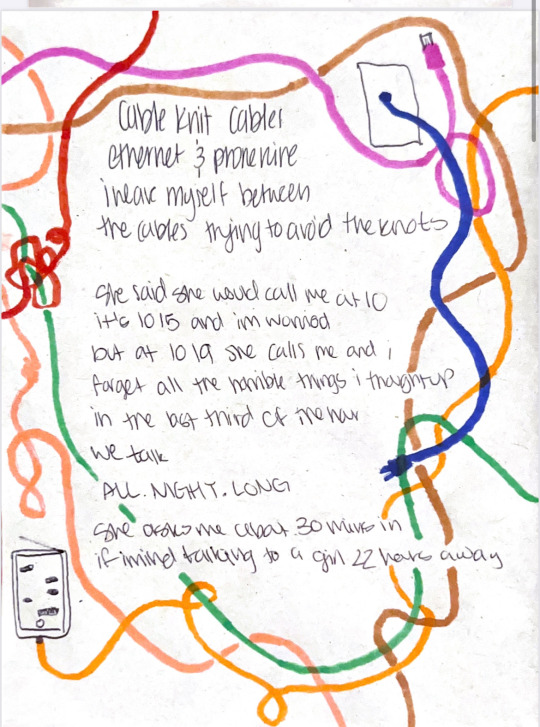 Cable knit cables
ethernet & phone wire
i weave myself between
the cables trying to avoid the knots
She said she would call me at 10
it's 10 15 and im worried
but at 10 19 she calls me and i
forget all the horrible things i thought up
in the last third of the hour
we talk
ALL. NIGHT. LONG
She asks me about 30 mins in
if i mind talking to a girl 22 hours away